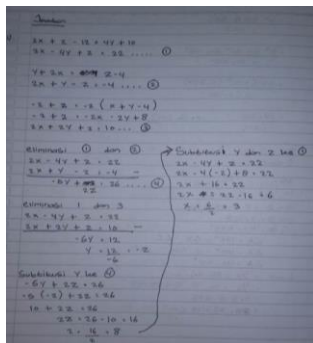 Jawaban
2x + z - 12 = 4y + 10
2x - 4y + z = 22 ..... ①
y + 2x = z - 4
2x + y - z = -4 ..... ②
-2 + z = -2 (x + y - 4)
-2 + z = -2x - 2y + 8
2x + 2y + z = 10 ... ③
Eliminasi ① dan ②
2x - 4y + z = 22
2x + y - z = -4 -
-5y + 2z = 26 .... ④
Eliminasi 1 dan 3
2x - 4y + z = 22
2x + 2y + z = 10 -
-6y = 12
y = 12 = -2
-6
Substitusi y ke ④
-5y + 2z = 26
-5 (-2) + 2z = 26
10 + 2z = 26
2z = 26 - 10 = 16
Substitusi y dan z ke ①
2x - 4y + z = 22
2x - 4(-2) + 8 = 22
2x + 16 = 22
2x = 22 - 16 = 6
x = 6 = 3
2